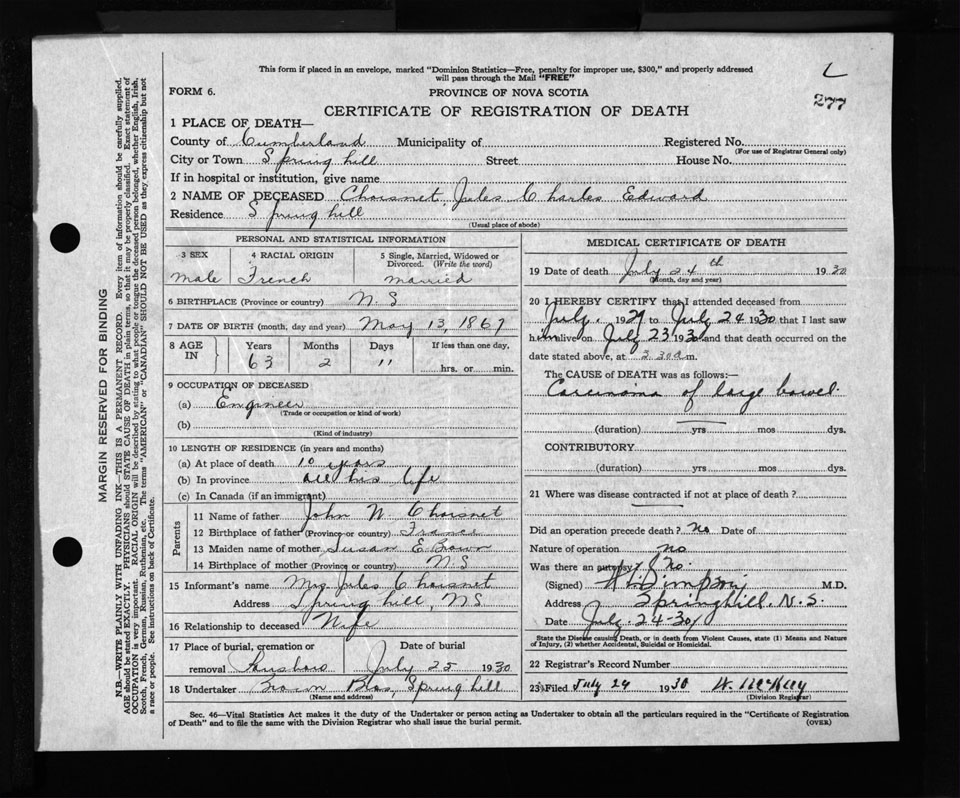 This form if placed in an envelope, marked "Dominion Statistics—Free, penalty for improper use, $300," and properly addressed
will pass through the Mail "FREE"
277
FORM 6. PROVINCE OF NOVA SCOTIA
CERTIFICATE OF REGISTRATION OF DEATH
1 PLACE OF DEATH—
County of Cumberland Municipality of Registered No.
(For use of Registrar General only)
City or Town Spring hill Street House No.
If in hospital or institution, give name
2 NAME OF DECEASED Choisnet, Jules Charles Edward
Residence Spring hill
(Usual place of abode)
PERSONAL AND STATISTICAL INFORMATION
3 SEX 4 RACIAL ORIGIN 5 Single, Married, Widowed or Divorced. (Write the word)
male French married
6 BIRTHPLACE (Province or country) N. S
7 DATE OF BIRTH (month, day and year) May 13, 1867
8 AGE IN Years Months Days If less than one day,
63 2 11 hrs. or min.
9 OCCUPATION OF DECEASED
(a) Engineer
(Trade or occupation or kind of work)
(b)
(Kind of industry)
10 LENGTH OF RESIDENCE (in years and months)
(a) At place of death 10 years
(b) In province all his life
(c) In Canada (if an immigrant)
Parents
11 Name of father John W Choisnet
12 Birthplace of father (Province or country) France
13 Maiden name of mother Susan E Brown
14 Birthplace of mother (Province or country) N. S
15 Informant's name Mrs Jules Choisnet
Address Spring hill, NS
16 Relationship to deceased Wife
17 Place of burial, cremation or removal Date of burial
July 25 1930
18 Undertaker Brown Bros, Spring hill
(Name and address)
MEDICAL CERTIFICATE OF DEATH
19 Date of death July 24th 1930
(Month, day and year)
20 I HEREBY CERTIFY that I attended deceased from
July. 1929 to July 24 1930 that I last saw
him alive on July 23 1930 and that death occurred on the
date stated above, at 2.30 a.m.
The CAUSE OF DEATH was as follows:—
Carcinoma of large bowel
(duration) yrs mos dys.
CONTRIBUTORY
(duration) yrs mos dys.
21 Where was disease contracted if not at place of death?
Did an operation precede death? No Date of
Nature of operation no
Was there an autopsy? No.
(Signed) M.D.
Address Springhill. N. S.
Date July. 24-30
State the Disease causing Death, or in death from Violent Causes, state (1) Means and Nature
of Injury, (2) whether Accidental, Suicidal or Homicidal.
22 Registrar's Record Number
23 Filed July 24 1930
(Division Registrar)
Sec. 46—Vital Statistics Act makes it the duty of the Undertaker or person acting as Undertaker to obtain all the particulars required in the "Certificate of Registration
of Death" and to file the same with the Division Registrar who shall issue the burial permit. (OVER)
MARGIN RESERVED FOR BINDING
N.B.—WRITE PLAINLY WITH UNFADING INK—THIS IS A PERMANENT RECORD. Every item of information should be carefully supplied.
AGE should be stated EXACTLY. PHYSICIANS should STATE CAUSE OF DEATH in plain terms, so that it may be properly classified. Exact statement of
OCCUPATION is very important. RACIAL ORIGIN will be described by stating to what people or tongue the deceased person belonged, whether English, Irish,
Scotch, French, German, Russian, Ruthenian, etc. The terms "AMERICAN" or "CANADIAN" SHOULD NOT BE USED as they express citizenship but not
a race or people. See instructions on back of Certificate.